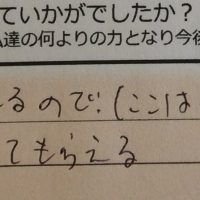 ていかがでしたか？
達の何よりの力となり今後
るので!(ここは
てもらえる